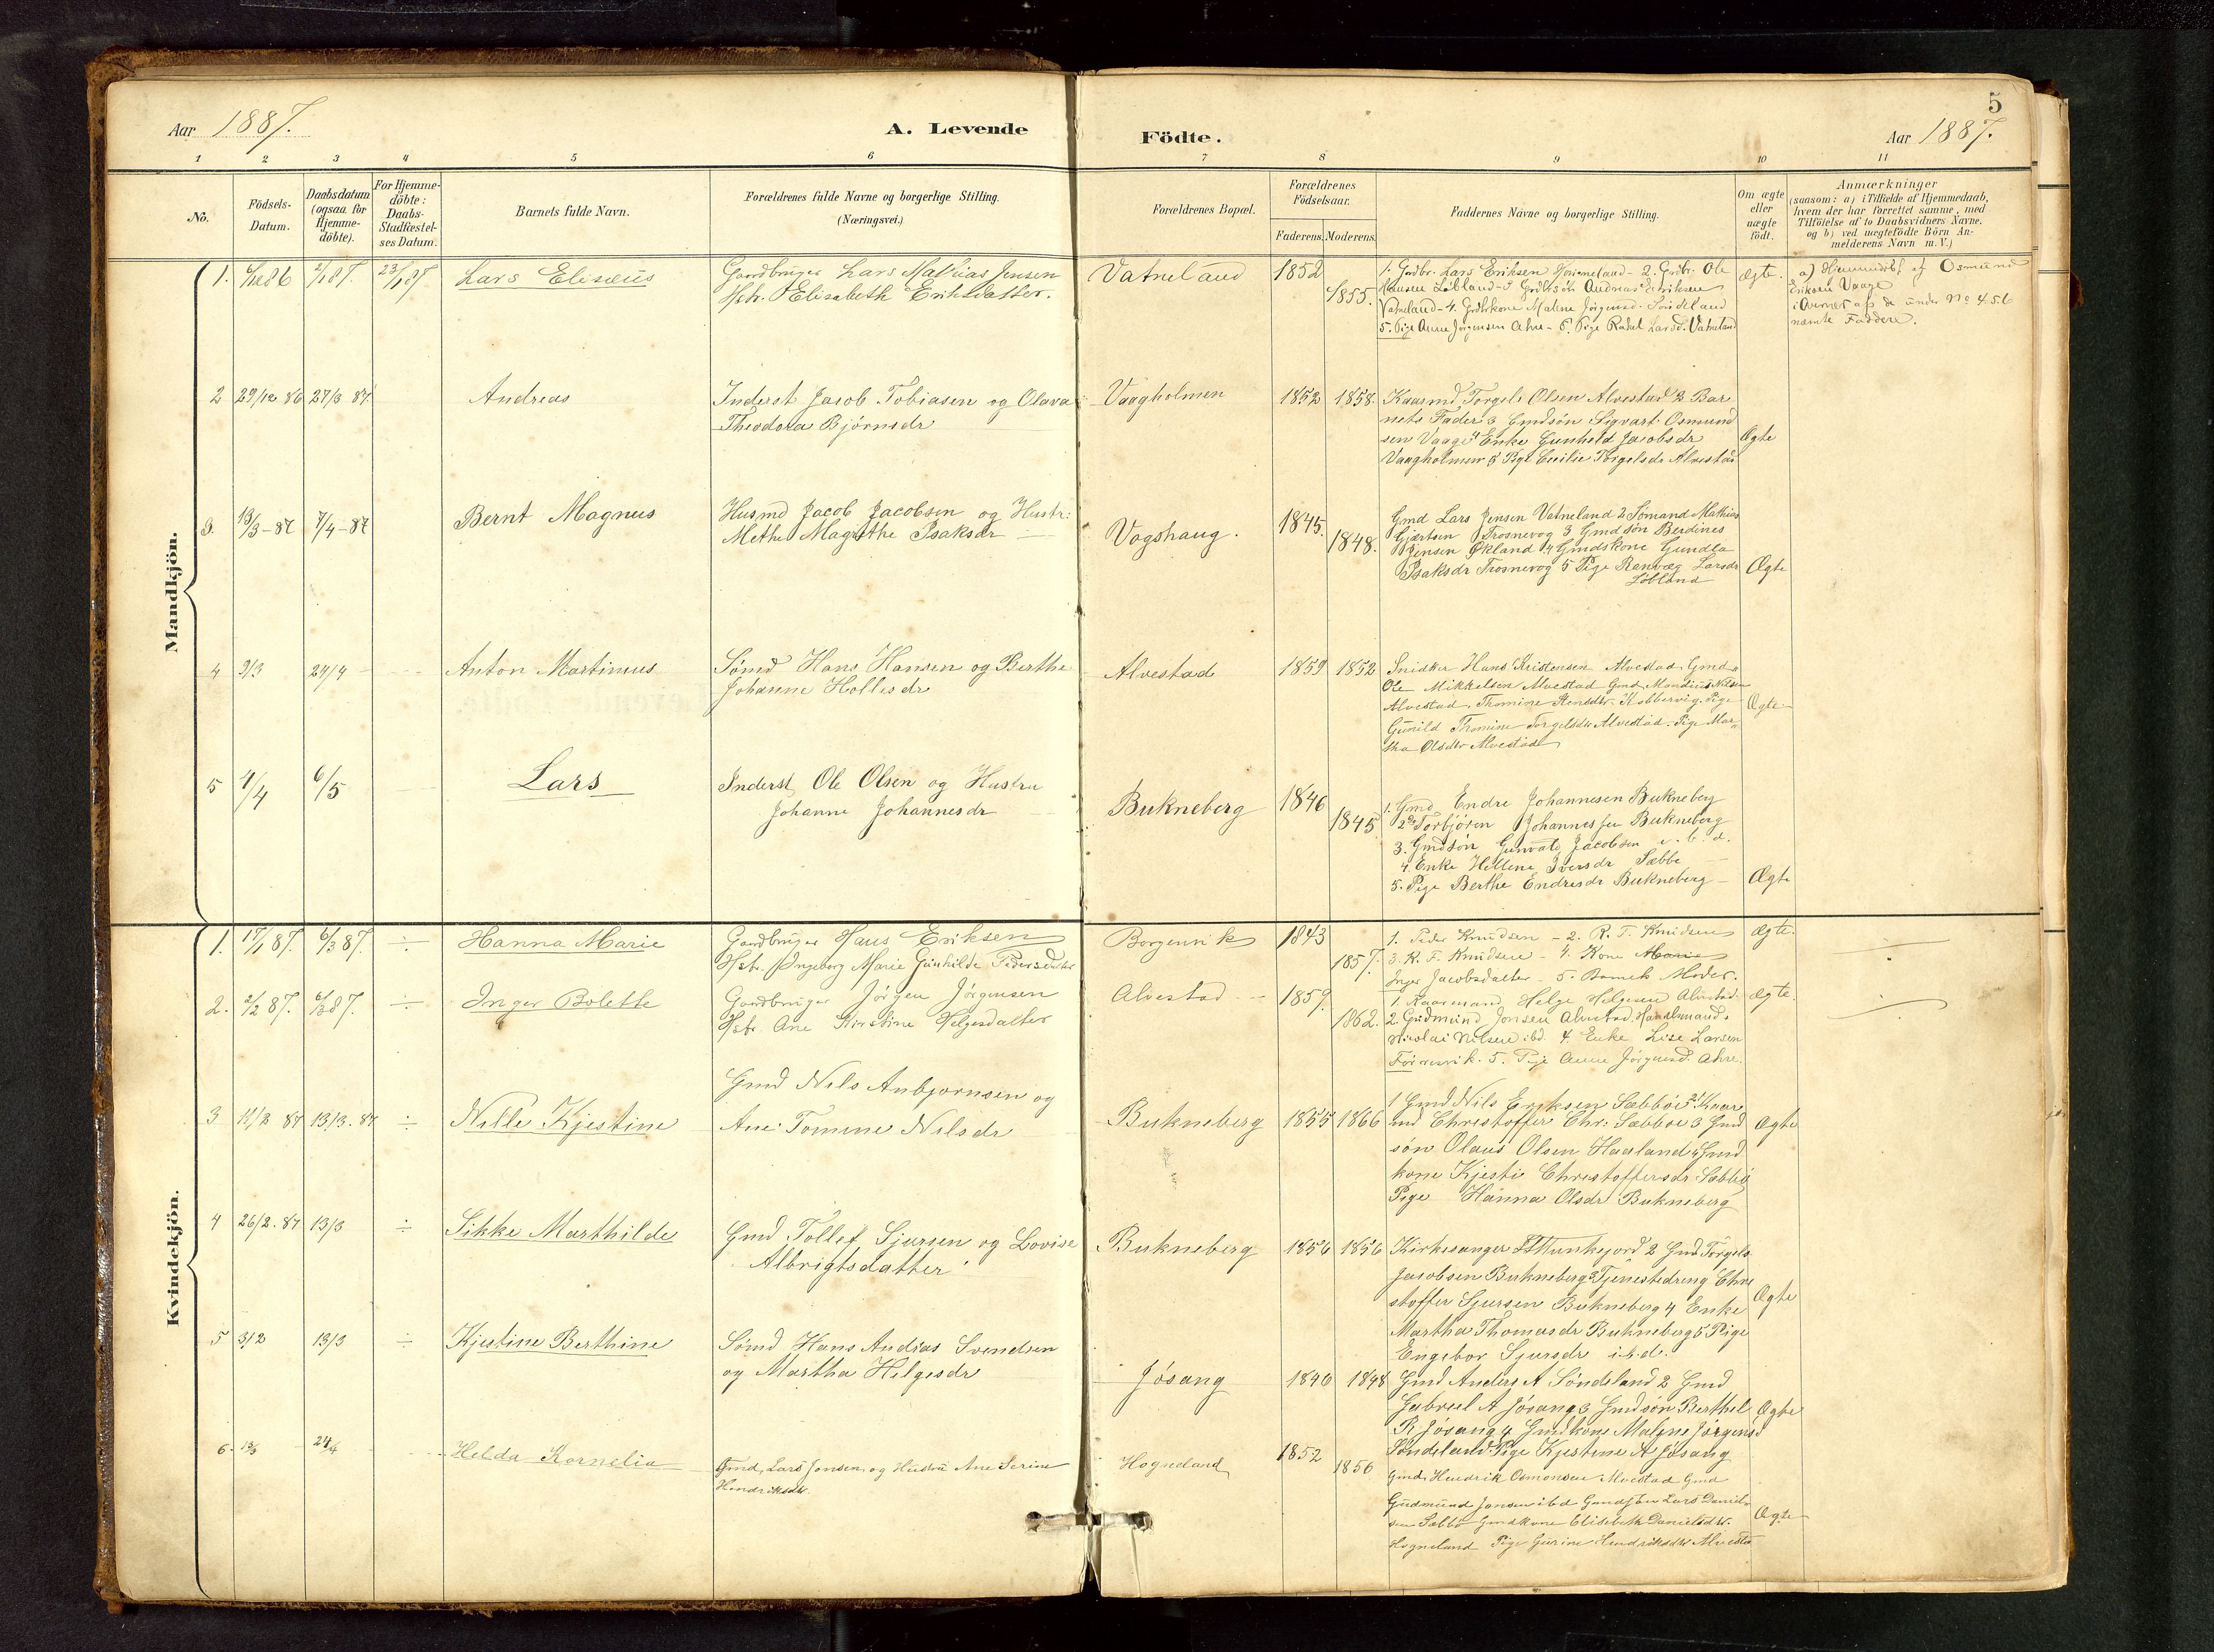 5
Aar 1887. A. Levende Födte. Aar 1887.
1 2 3 4 5 6 7 8 9 10 11
No.
Födsels-
Datum.
Daabsdatum
(ogsaa for
Hjemme-
döbte).
For Hjemme-
döbte:
Daabs-
Stadfæstel-
ses Datum.
Barnets fulde Navn.
Forældrenes fulde Navne og borgerlige Stilling.
(Næringsvei.)
Forældrenes Bopæl.
Forældrenes
Födselsaar.
Faderens. Moderens.
Faddernes Navne og borgerlige Stilling.
Om ægte
eller
uægte
födt.
Anmærkninger
(saasom: a) i Tilfælde af Hjemmedaab,
hvem der har forrettet samme, med
Tilföielse af to Daabsvidners Navne.
og b) ved uægtefödte Börn An-
melderens Navn m. V.)
Mandkjön.
1. 23/1 87 Lars Elisæus
Gaardbruger Lars Mathias Jensen
Hstr. Elisabeth Eriksdatter.
Vatneland 1852
1855.
1. Grdbr. Lars Eriksen - 2. Grdbr. Ole
Hansen Löbland - 3 Andreas
Vatneland - 4. Malene Jörgensd.
5. Pige Anne Jörgensen - 6. Pige Rakel Larsd. Vatneland
Ægte.
a) Hjemmedöbt af Osmund
Eriksen Vaage
under No 4 5 6
nævnte Faddere.
2 29/12 86 27/3 87. Andreas
Inderst Jacob Tobiasen og Olava
Theodora Bjørnsdr
Vaagholmen 1852 1858.
Kaarmd Torgels Olsen Alvestad 2 Bar
nets Fader 3 Gmdsøn Sigvart Osmund
sen Vaage 4 Enke Gunhild Jacobsdr
Vaagholmen 5 Pige Cecilie Torgelsdr Alvestad
Ægte
3. 13/3-87 7/4-87 Bernt Magnus
Husmd Jacob Jacobsen og Hustr:
Methe Magrethe Isaksdr
Vogshaug. 1845.
1848.
Gmd Lars Jensen Vatneland 2 Sömand Mathias
Gjertsen Trosnevog 3 Gmdsøn Berdines
Jensen Økland 4 Gmdskone Gundla
Isaksdr Trosnevog 5 Pige Renvæg Larsdr
Löbland
Ægte
4 9/3 24/4 Anton Martinus
Sømd Hans Hansen og Berthe
Johanne Hollesdr
Alvestad 1859 1852
Snidker Hans Kristensen Alvestad, Gmd
Ole Mikkelsen Alvestad Gmd Mandius Nilsen
Alvestad, Thomine Stensdtr. Kobbervig. Pige
Gunild Thomine Torgelsdtr Alvestad. Pige Mar
tha Olsdtr Alvestad
Ægte
5 4/4 6/5 Lars
Inderst, Ole Olsen og Hustru
Johanne Johannesdr
Bukneberg 1846
1845
1. Gmd Endre Johannesen Bukneberg
2 Torbjören Johannessen Bukneberg
3. Gmdsön Jacobsen i. b. d.
4. Enke Hellene Iversdr Sæbbe
5. Pige Berthe Endresdr Bukneberg
Ægte
Kvindekjön.
1. 17/1 87. 6/3 87. ÷ Hanna Marie
Gaardbruger Hans Eriksen
Hstr. Ingeborg Marie Gunhilde Pedersdatter
1843
1857.
1. Peder Knudsen - 2. R. T. Knudsen
3. K. F. Knudsen - 4. Kone Marie
Inger Jacobsdatter - 5. Barnets Moder.
Ægte.
2. 2/2 87. 6/3 87. ÷ Inger Bolette
Gaardbruger Jörgen Jörgensen
Hstr. Ane Kirstine Helgesdatter
Alvestad 1859.
1862.
1. Kaarmand Helge Helgesen Alvestad.
2. Gudmund Jonsen Alvestad. Handelsmand
Nicolai Nilsen ibd. 4. Enke Lise Larsen
5. Pige Anne Jörgensd.
Ægte.
3 11/2 87 13/3. 87 ÷ Nille Kjestine
Gmd Nils Anbjornsen og
Ane Tomine Nilsdr
Bukneberg 1855 1866
1 Gmd Nils Eriksen Sæbböe 2 Kaar
md Christoffer Chr: Sæbböe 3 Gmd
søn Olaus Olsen Haaland 4 Gmd
kone Kjesti Christoffersdr Sæbbö
Pige Hanna Olsdr Bukneberg
Ægte
4 26/2. 87 13/3 ÷ Sikke Marthilde
Gmd Tollef Sjursen og Lovise
Albrigtsdatter
Bukneberg 1856 1856
Kirkesanger 2 Gmd Torgels
Jacobsen Bukneberg 3 Tjenestedreng Chri
stoffer Sjursen Bukneberg 4 Enke
Martha Thomasdr Bukneberg 5 Pige
Engebor Sjursdr i.b.d.
Ægte
5 3/2 13/3 ÷ Kjestine Berthine
Sømd Hans Andreas Svendsen
og Martha Helgesdr
Jøsang 1846 1848
Gmd Anders A Söndeland 2 Gmd
Gabriel A Jøsang 3 Gmdsøn Berthel
R Jøsang 4 Gmdkone Malene Jörgensd
Söndeland Pige Kjestine A Jøsang
Ægte
6. 24/4 Helda Kornelia
Gmd, Lars Jonsen og Hustru Ane Serine
Hendriksdtr.
Hogneland 1852
1856
Gmd. Hendrik Osmonsen Alvestad Gmd
Gudmund Jonsen ibd Lars Daniel-
sen Sæbbö Gmdkone Elisebeth Danielsdtr.
Hogneland Pige Gurine Hendriksdtr Alvestad
Ægte